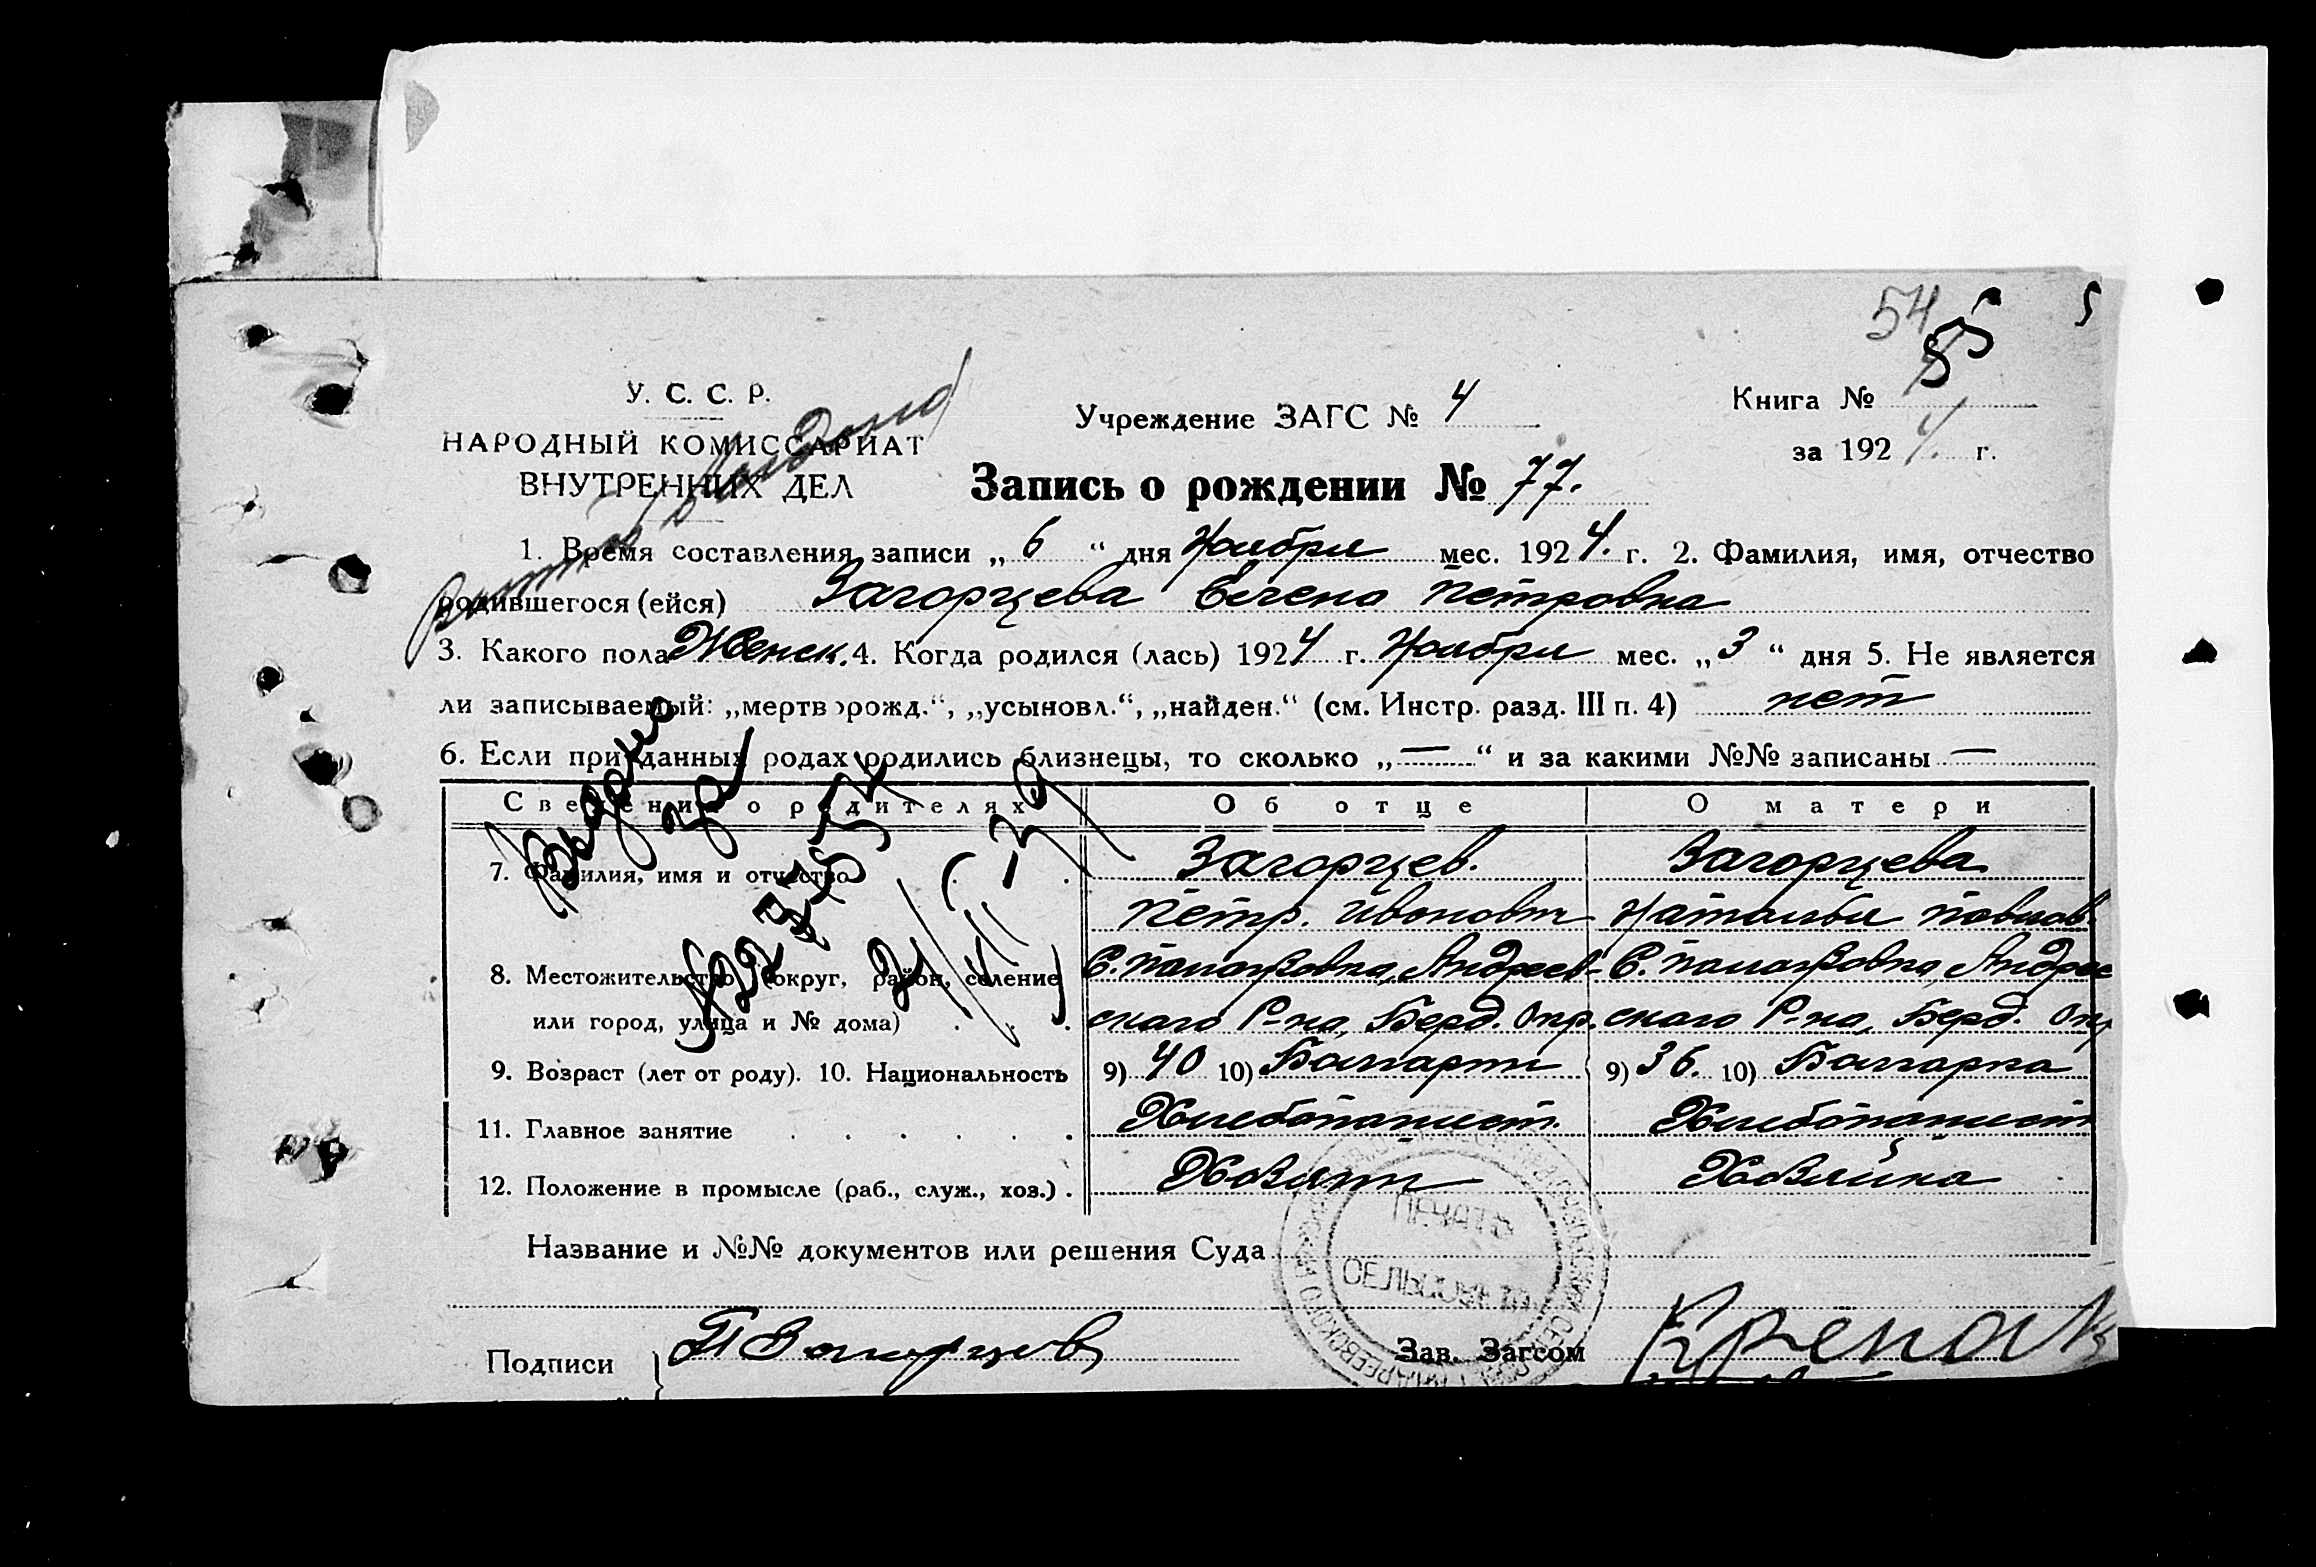 54
5
У. С. С. Р.
НАРОДНЫЙ КОМИССАРИАТ
ВНУТРЕННИХ ДЕЛ
Учреждение ЗАГС № 4
Книга №
за 1924 г.
Запись о рождении № 77.
1. Время составления записи „ 6 “ дня Ноября мес. 1924. г. 2. Фамилия, имя, отчество
родившегося (ейся) Загорцева Елена Петровна
3. Какого пола Женск. 4. Когда родился (лась) 1924 г. Ноября мес. „ 3 “ дня 5. Не является
ли записываемый: „мертворожд.“, „усыновл.“, „найден.“ (см. Инстр. разд. III п. 4) нет
6. Если при данных родах родились близнецы, то сколько „ — “ и за какими №№ записаны —
Сведения о родителях Об отце О матери
7. Фамилия, имя и отчество Загорцев. Загорцева
Петр. Иванович Наталья Павлов-
8. Местожительство (округ, район, селение С. Полоузовка, Андреев- С. Полоузовка, Андрее
или город, улица и № дома) ского Р-на, Берд. Окр. ского Р-на, Берд. Окр
9. Возраст (лет от роду). 10. Национальность 9) 40 10) Болгарин 9) 36. 10) Болгарка
11. Главное занятие Хлебопашест. Хлебопашест
12. Положение в промысле (раб., служ., хоз.) . Хозяин Хозяйка
Название и №№ документов или решения Суда
ПЕЧАТЬ
СЕЛЬСОВЕТА
Подписи П Загорцев Зав. Загсом
Выдано